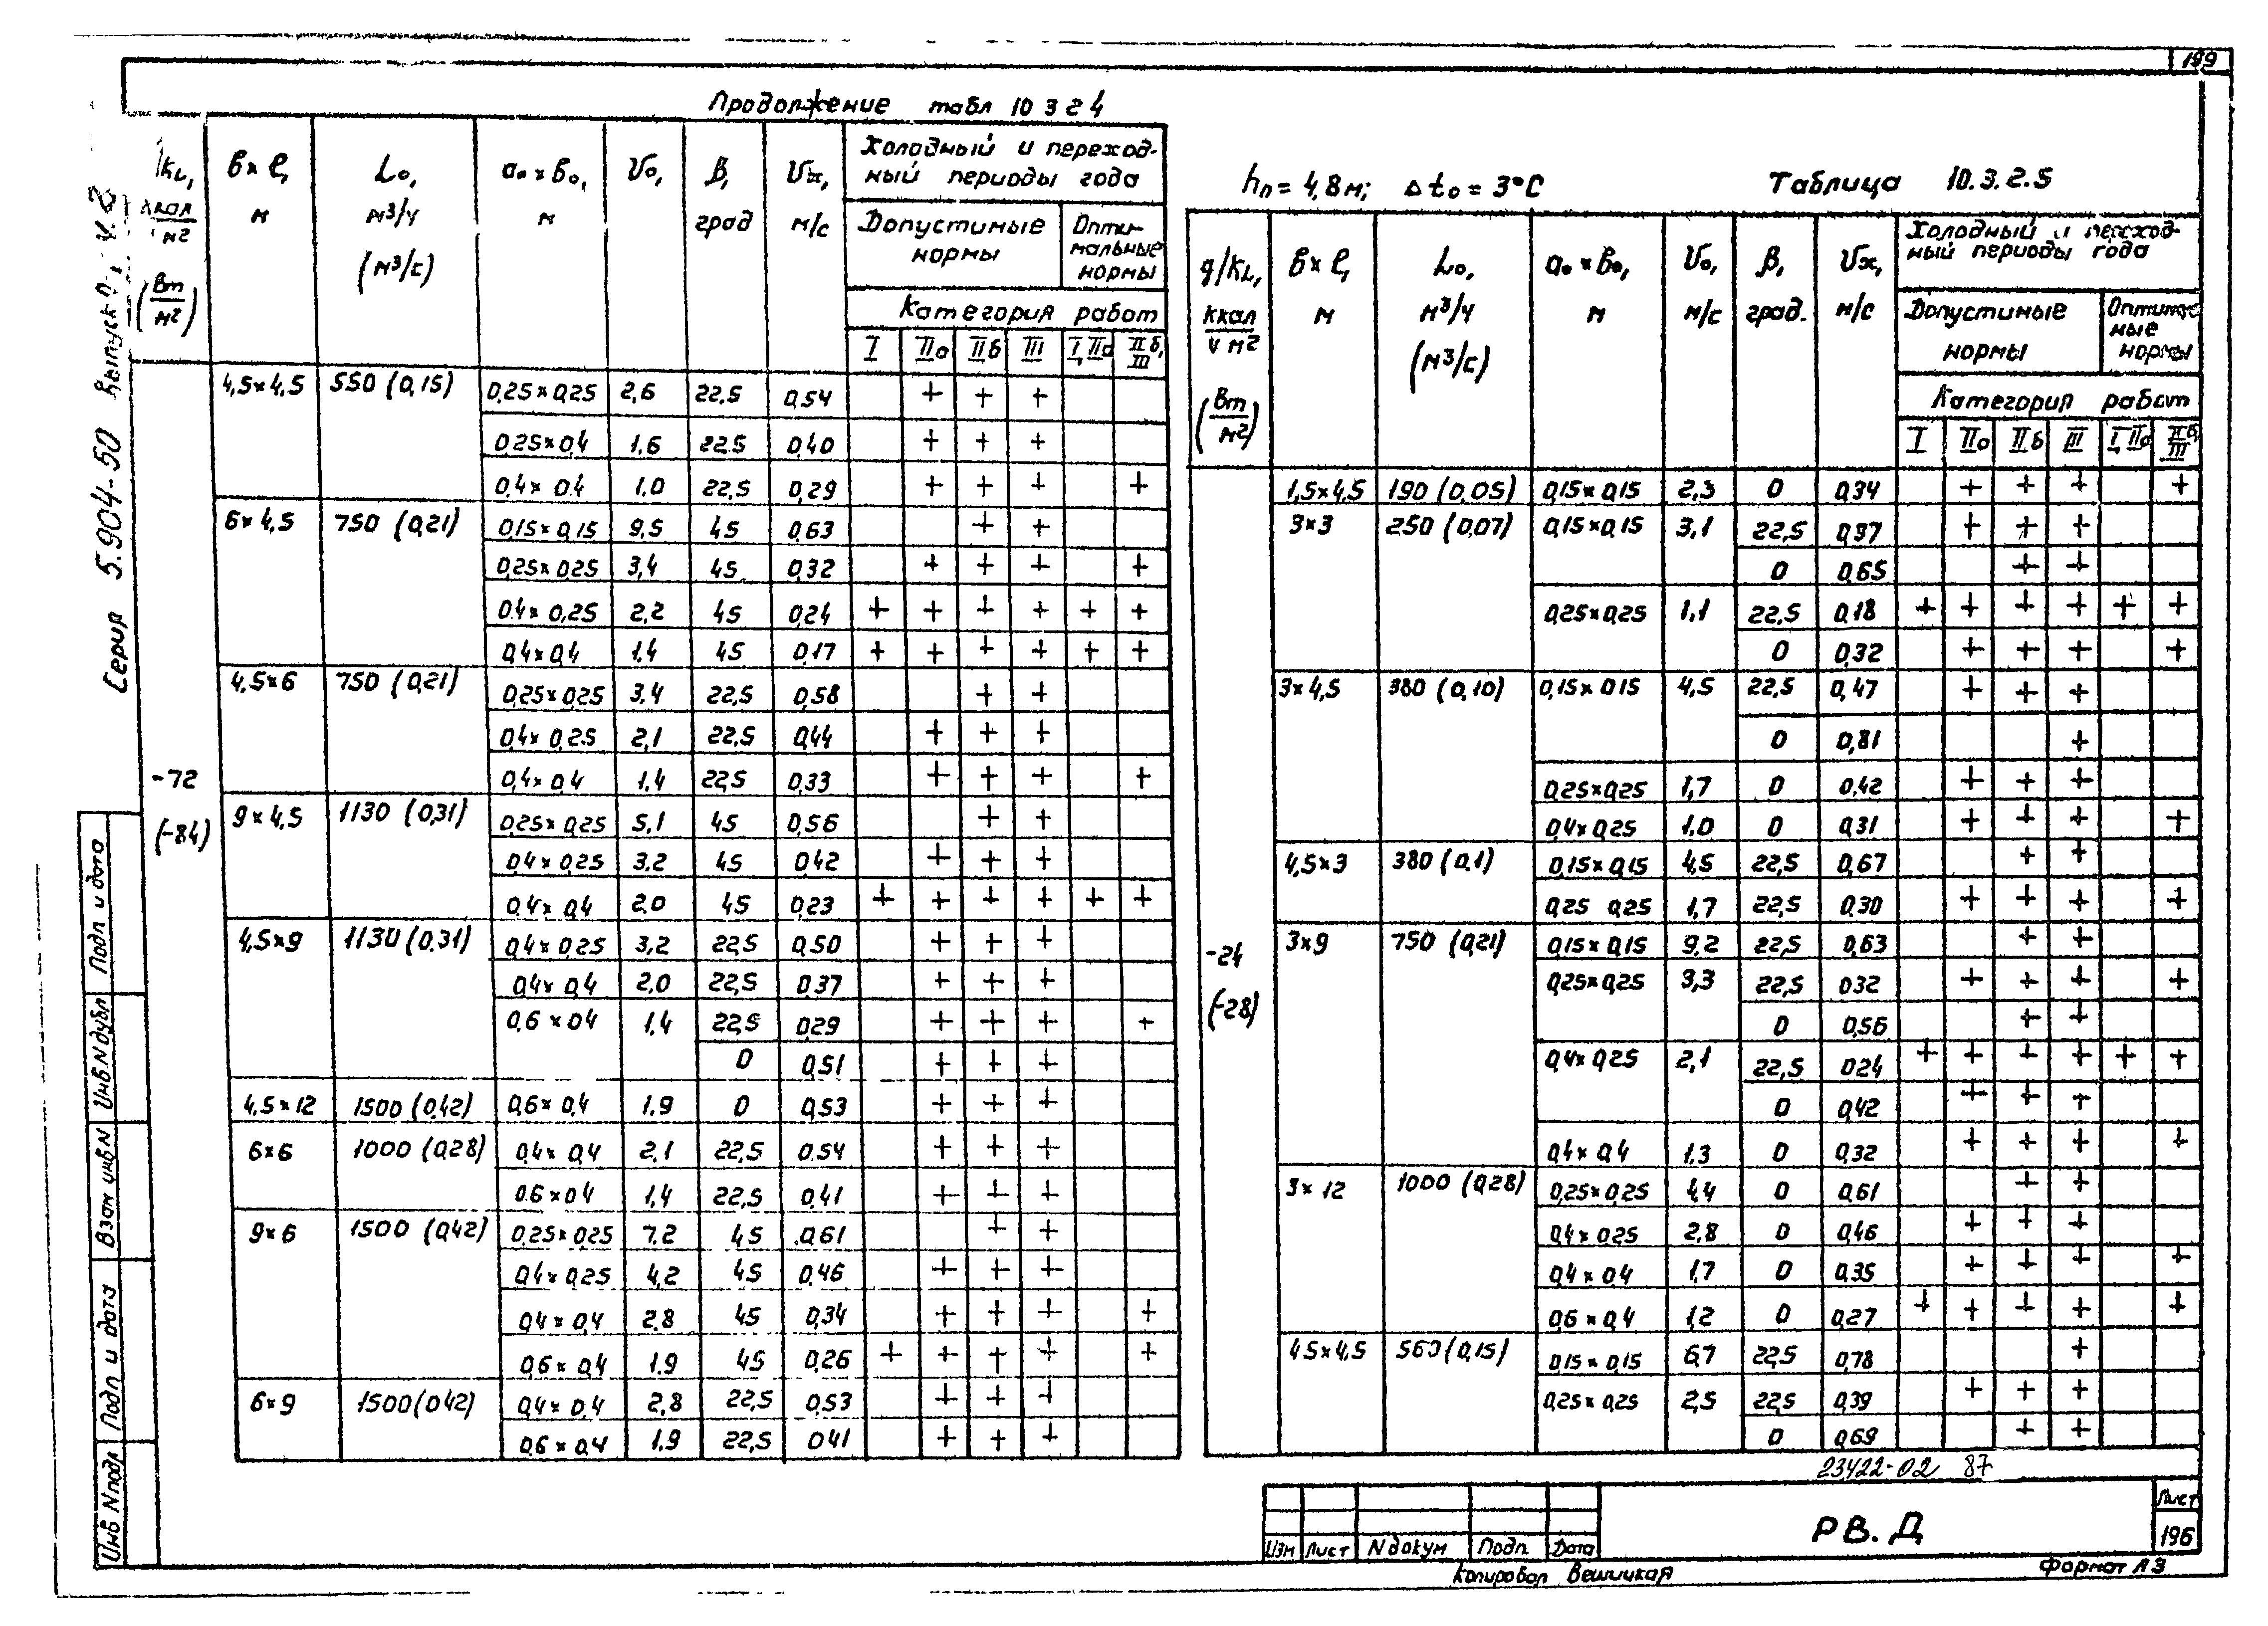 199
Продолжение табл 10 3 2 4
kL, ккал/м² (Вт/м²) | в×ℓ, м | Lо, м³/ч (м³/с) | aо×во, м | Vо, | β, град | Vх, м/с | Холодный и переходный периоды года
Допустимые нормы | Оптимальные нормы
Категория работ
I | IIа | IIб | III | I, IIа | IIб, III
-72 (-84)
4,5×4,5 | 550 (0,15) | 0,25×0,25 | 2,6 | 22,5 | 0,54 | | + | + | + | |
0,25×0,4 | 1,6 | 22,5 | 0,40 | | + | + | + | |
0,4×0.4 | 1,0 | 22,5 | 0,29 | | + | + | + | | +
6×4,5 | 750 (0,21) | 0,15×0,15 | 9,5 | 45 | 0,63 | | | + | + | |
0,25×0,25 | 3,4 | 45 | 0,32 | | + | + | + | | +
0.4×0,25 | 2,2 | 45 | 0,24 | + | + | + | + | + | +
0,4×0,4 | 1,4 | 45 | 0,17 | + | + | + | + | + | +
4,5×6 | 750 (0,21) | 0,25×0,25 | 3,4 | 22,5 | 0,58 | | | + | + | |
0,4×0,25 | 2,1 | 22,5 | 0,44 | | + | + | + | |
0,4×0,4 | 1,4 | 22,5 | 0,33 | | + | + | + | | +
9×4,5 | 1130 (0,31) | 0,25×0,25 | 5,1 | 45 | 0,56 | | | + | + | |
0,4×0,25 | 3,2 | 45 | 0,42 | | + | + | + | |
0,4×0,4 | 2,0 | 45 | 0,23 | + | + | + | + | + | +
4,5×9 | 1130 (0.31) | 0,4×0,25 | 3,2 | 22,5 | 0,50 | | + | + | + | |
0,4×0,4 | 2,0 | 22,5 | 0.37 | | + | + | + | |
0,6×04 | 1,4 | 22,5 | 0,29 | | + | + | + | | +
0 | 0,51 | | + | + | + | |
4,5×12 | 1500 (0,42) | 0,6×0,4 | 1.9 | 0 | 0,53 | | + | + | + | |
6×6 | 1000 (0,28) | 0,4×0,4 | 2,1 | 22,5 | 0.54 | | + | + | + | |
0.6×0,4 | 1,4 | 22,5 | 0,41 | | + | + | + | |
9×6 | 1500 (0,42) | 0,25×0,25 | 7,2 | 45 | 0,61 | | | + | + | |
0,4×0,25 | 4,2 | 45 | 0,46 | | + | + | + | |
0,4×0,4 | 2,8 | 45 | 0,34 | | + | + | + | | +
0,6×0,4 | 1.9 | 45 | 0,26 | + | + | + | + | | +
6×9 | 1500 (042) | 0,4×0,4 | 2,8 | 22,5 | 0,53 | | + | + | + | |
0,6×0,4 | 1,9 | 22,5 | 041 | | + | + | + | |
hп = 4,8м; Δtо = 3°С Таблица 10.3.2.5
q/kL, ккал/ч м² (Вт/м²) | в×ℓ, м | Lо, м³/ч (м³/с) | aо×во, м | Vо, м/с | β, град. | Vх, м/с | Холодный и переходный периоды года
Допустимые нормы | Оптимальные нормы
Категория работ
I | IIа | IIб | III | I, IIа | IIб, III
-24 (-28)
1,5×4,5 | 190 (0,05) | 0,15×0,15 | 2,3 | 0 | 0,34 | | + | + | + | | +
3×3 | 250 (0,07) | 0,15×0,15 | 3,1 | 22,5 | 0,37 | | + | + | + | |
0 | 0,65 | | | + | + | |
0,25×0,25 | 1,1 | 22,5 | 0,18 | + | + | + | + | + | +
0 | 0,32 | | + | + | + | | +
3×4,5 | 380 (0,10) | 0,15×015 | 4,5 | 22,5 | 0,47 | | + | + | + | |
0 | 0,81 | | | | + | |
0,25×0,25 | 1,7 | 0 | 0,42 | | + | + | + | |
0,4×0,25 | 1,0 | 0 | 0,31 | | + | + | + | | +
4,5×3 | 380 (0,1) | 0,15×0,15 | 4,5 | 22,5 | 0,67 | | | + | + | |
0,25 0,25 | 1,7 | 22,5 | 0,30 | | + | + | + | | +
3×9 | 750 (0,21) | 0,15×0,15 | 9,2 | 22,5 | 0,63 | | | + | + | |
0,25×0,25 | 3,3 | 22,5 | 032 | | + | + | + | | +
0 | 0,56 | | | + | + | |
0,4×0,25 | 2,1 | 22,5 | 024 | + | + | + | + | + | +
0 | 0,42 | | + | + | + | |
0,4×0,4 | 1,3 | 0 | 0,32 | | + | + | + | | +
3×12 | 1000 (0,28) | 0,25×0,25 | 4,4 | 0 | 0,61 | | | + | + | |
0,4×0,25 | 2,8 | 0 | 0,46 | | + | + | + | |
0,4×0,4 | 1,7 | 0 | 0,35 | | + | + | + | | +
0,6×0,4 | 1,2 | 0 | 0,27 | + | + | + | + | | +
4,5×4,5 | 560 (0,15) | 0,15×0,15 | 6,7 | 22,5 | 0,78 | | | | + | |
0,25×0,25 | 2,5 | 22,5 | 0,39 | | + | + | + | |
0 | 0,69 | | | + | + | |
23422-02 87
РВ.Д
Лист
196
Изм Лист N докум Подп. Дата
Копировал
Формат А3
Серия 5.904-50 Выпуск 0, ч.2
Инв N подл Подп и дата Взам инв N Инв. N дубл Подп. и дата